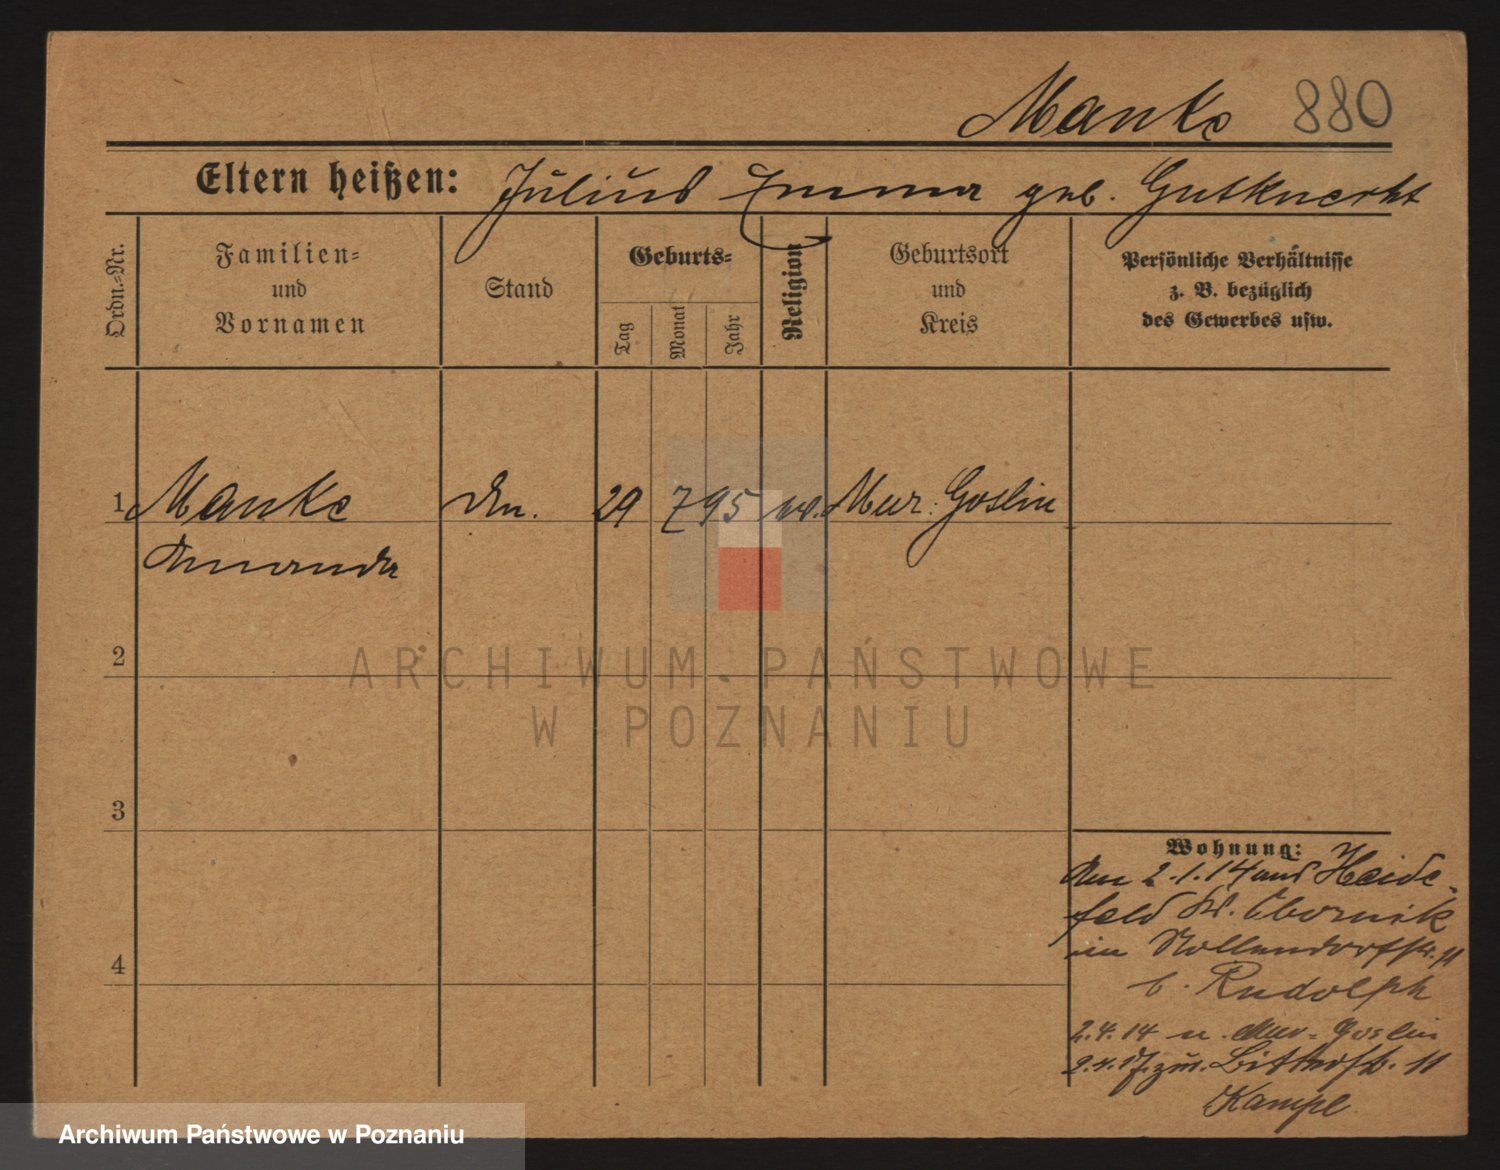 Manke 880
Eltern heißen: Julius Emma geb. Gutknecht
Ordn.=Nr.
Familien=
und
Vornamen
Stand
Geburts=
Tag
Monat
Jahr
Religion
Geburtsort
und
Kreis
Persönliche Verhältnisse
z. B. bezüglich
des Gewerbes usw.
1 Manke 29 7 95 Mur. Goslin
Amanda
2
3
4
Wohnung:
2.1.14 aus Heide-
feld Kr. Obornik
in Nollendorfstr. 11
b. Rudolph
2.4.14 n. Mur-Goslin
Kampe
ARCHIWUM PAŃSTWOWE
W POZNANIU
Archiwum Państwowe w Poznaniu